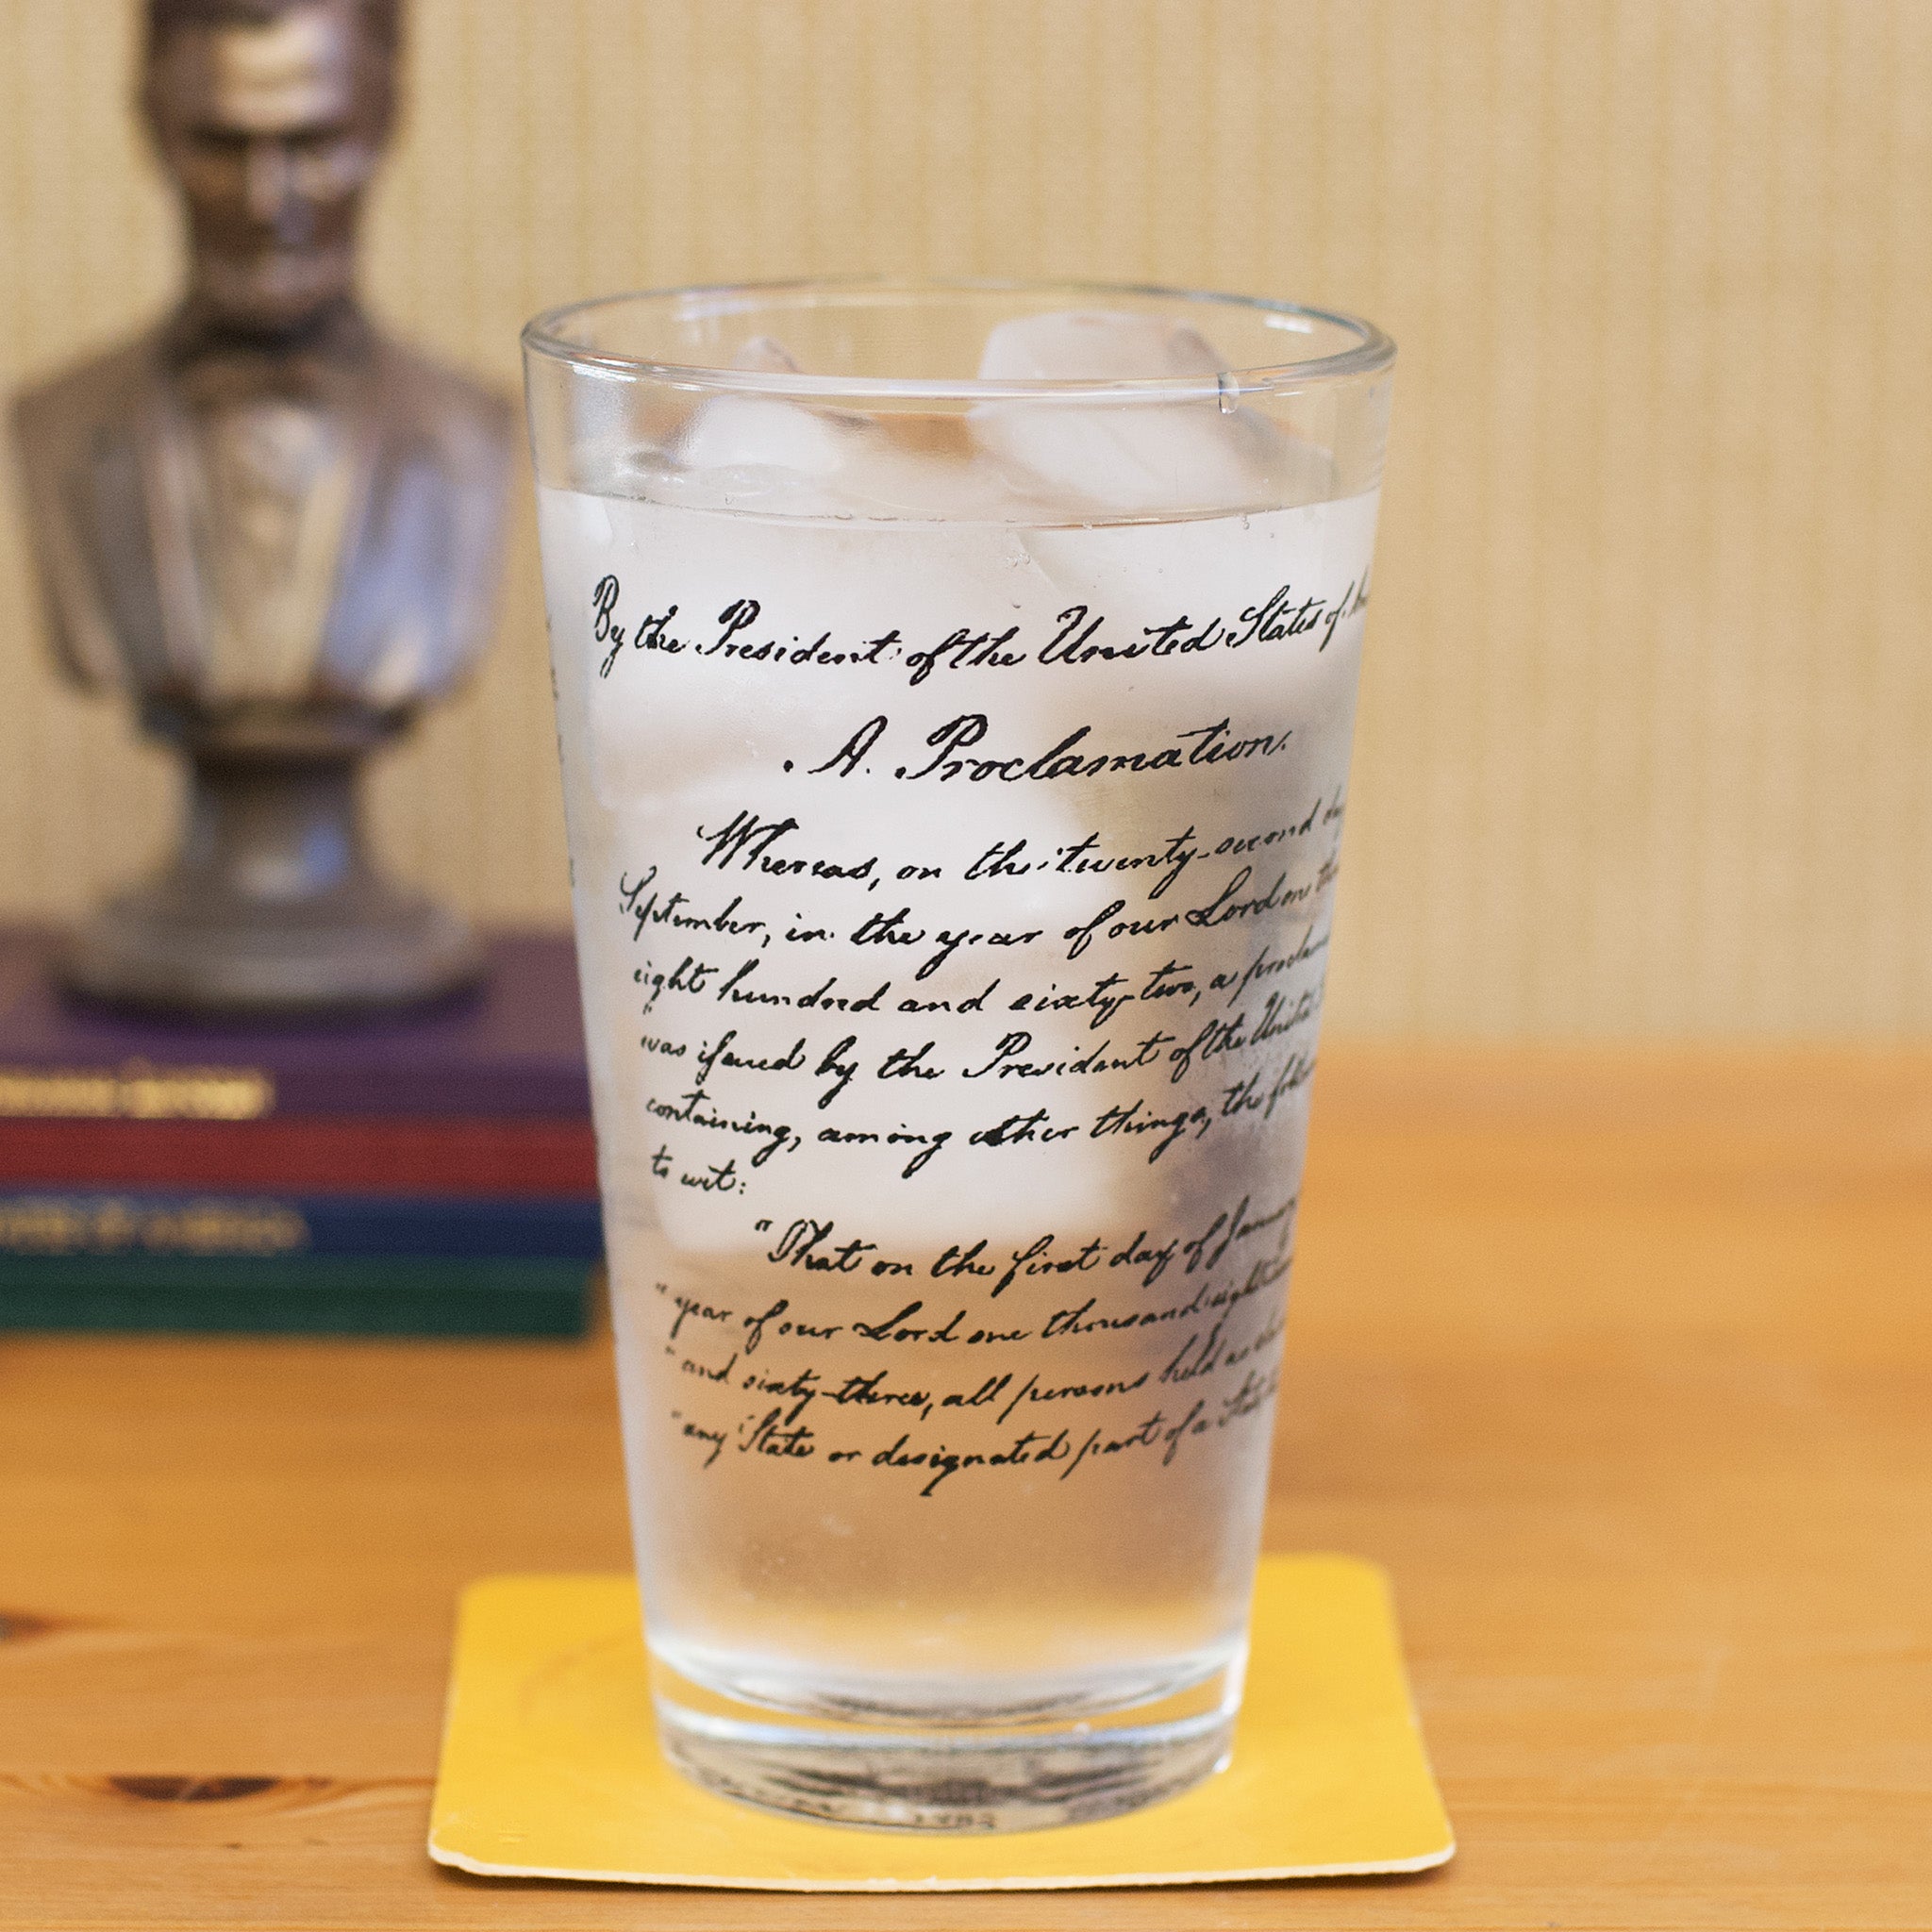 By the President of the United States of
A. Proclamation.
Whereas, on the twenty-second
September, in the year of our Lord one
eight hundred and sixty-two, a
was issued by the President of the United
containing, among other things, the
to wit:
"That on the first day of
"year of our Lord one thousand eight
"and sixty-three, all persons held as
"any State or designated part of a State